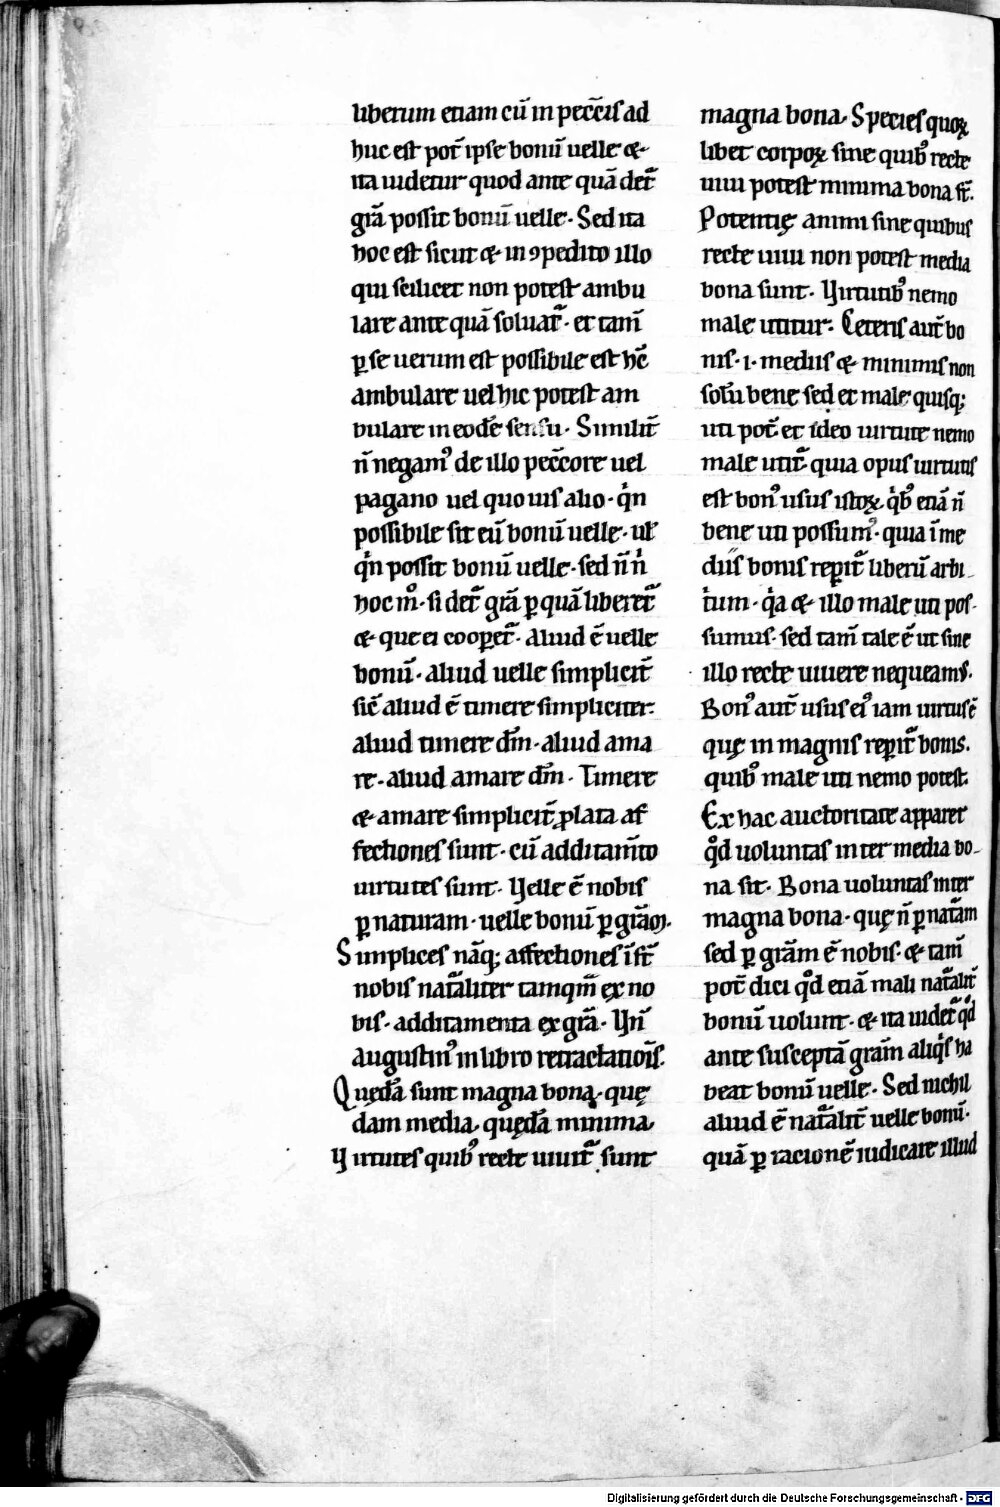 liberum etiam cũ in pecc̃is ad
huc est pot̃ ipse bonũ uelle &
ita uidetur quod ante quã det̃
gr̃ã possit bonũ uelle. Sed ita
hoc est sicut & in ꝯpedito illo
qui scilicet non potest ambu
lare ante quã soluat̃. et tam̃
ꝑ se uerum est possibile est hc̃
ambulare uel hic potest am
bulare in eodẽ sensu. Similit̃
ñ negamꝰ de illo pecc̃ore uel
pagano uel quo uis alio. qͥn
possibile sit eũ bonũ uelle. uł
qͥn possit bonũ uelle. sed ñ nͥ
hoc mͦ. si det̃ gr̃a ꝑ quã liberet̃
& que ei cooꝑet̃. Aliud ẽ uelle
bonũ. aliud uelle simplicit̃
sic̃ aliud ẽ timere simpliciter.
aliud timere dm̃. aliud ama
re. aliud amare dm̃. Timere
& amare simplicit̃ ꝓlata af
fectiones sunt. cũ additam̃to
uirtutes sunt. Velle ẽ nobis
ꝑ naturam. uelle bonũ ꝑ gr̃am.
Simplices nãq; affectiones ĩst̃
nobis nat̃aliter tamqm̃ ex no
bis. additamenta ex gr̃a. Vñ
augustinꝰ in libro retractatiois̃.
Quędã sunt magna bona. quę
dam media. quędã minima.
Virtutes quibꝰ recte uiuit̃ sunt
magna bona. Species quoꝝ
libet corpoꝝ sine quibꝰ recte
uiui potest minima bona st̃.
Potentię animi sine quibus
recte uiui non potest media
bona sunt. Virtutibꝰ nemo
male utitur. Ceteris aut̃ bo
nis .i. mediis & minimis non
solũ bene sed et male quisq;
uti pot̃ et ideo uirtute nemo
male utit̃. quia opus uirtutis
est bonꝰ usus istoꝝ qͥbꝰ etiã ñ
bene uti possumꝰ. quia ĩ me
diis bonis reꝑit̃ liberũ arbi
tͥum. qͥa & illo male uti pos-
sumus. sed tam̃ tale ẽ ut sine
illo recte uiuere nequeamꝰ.
Bonꝰ aut̃ usus eiꝰ iam uirtus ẽ
quę in magnis reꝑit̃ bonis.
quibꝰ male uti nemo potest.
Ex hac auctoritate apparet
qͦd uoluntas inter media bo-
na sit. Bona uoluntas inter
magna bona. quę ñ ꝑ nat̃am
sed ꝑ gr̃am ẽ nobis. & tam̃
pot̃ dici qͦd etiã mali nat̃alit̃
bonũ uolunt. & ita uidet̃ qͦd
ante susceptã gr̃am aliqͥs ha
beat bonũ uelle. Sed nichil
aliud ẽ nat̃alit̃ uelle bonũ.
quã ꝑ racionẽ iudicare illud
Digitalisierung gefördert durch die Deutsche Forschungsgemeinschaft - DFG